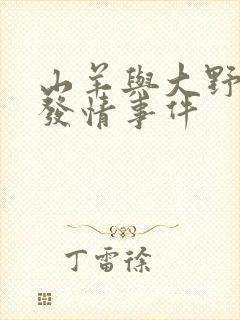 山羊與大野
發情事件
丁雷徐